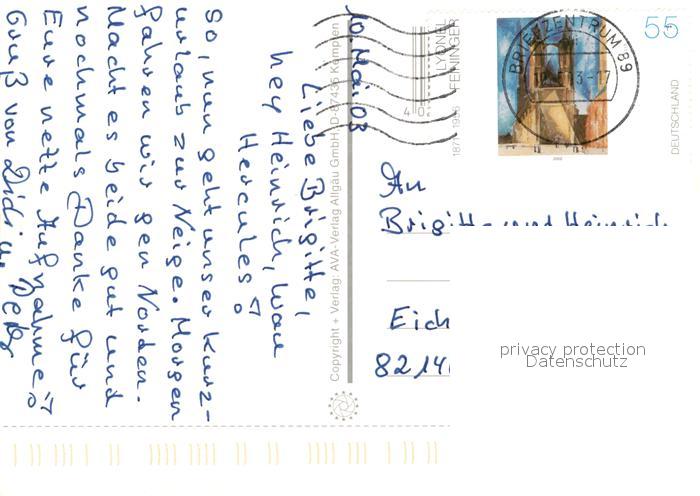 10. Mai 03
Liebe Brigitte,
hey Heinrich, wau
Hercules!
So, nun geht unser Kurz-
urlaub zur Neige. Morgen
fahren wir gen Norden.
Macht es beide gut und
nochmals Danke für
Eure nette Aufnahme!
Gruß von Didi u.
Copyright + Verlag: AVA-Verlag Allgäu GmbH, D-87435 Kempten
LYONEL
FEININGER
1871-1956
55
DEUTSCHLAND
2002
BRIEFZENTRUM 89
An
Brigitte und Heinrich
Eich
8214
privacy protection
Datenschutz